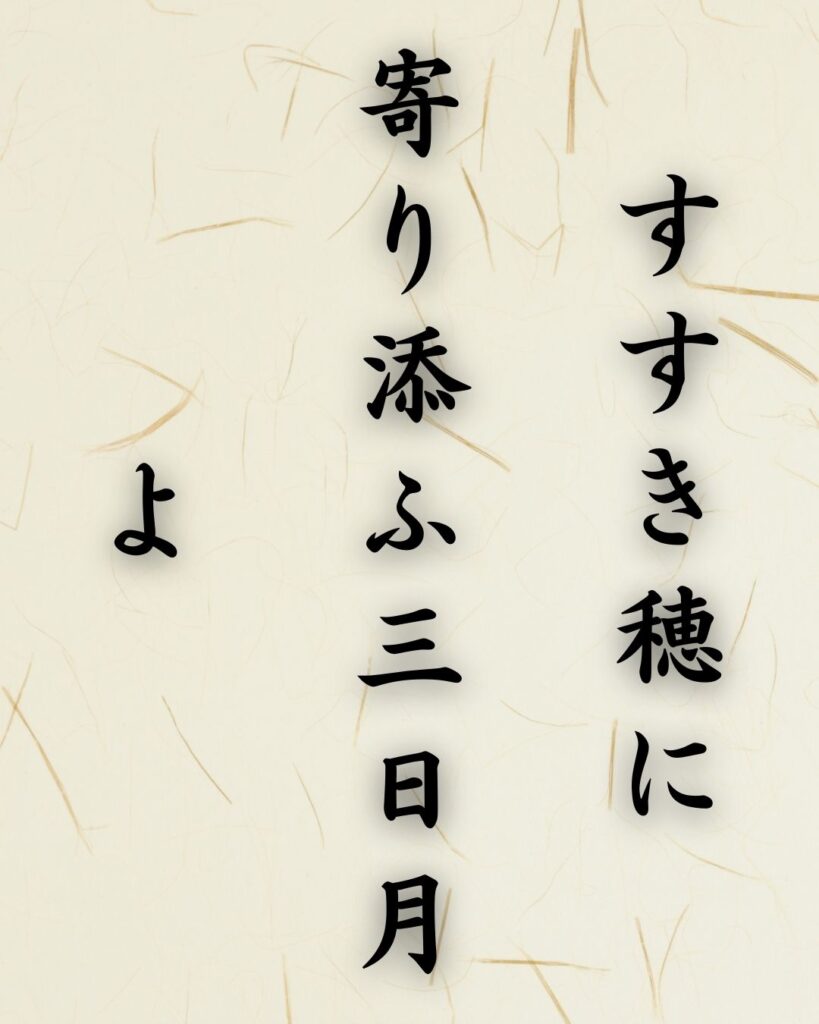 すすき穂に
寄り添ふ三日月
よ